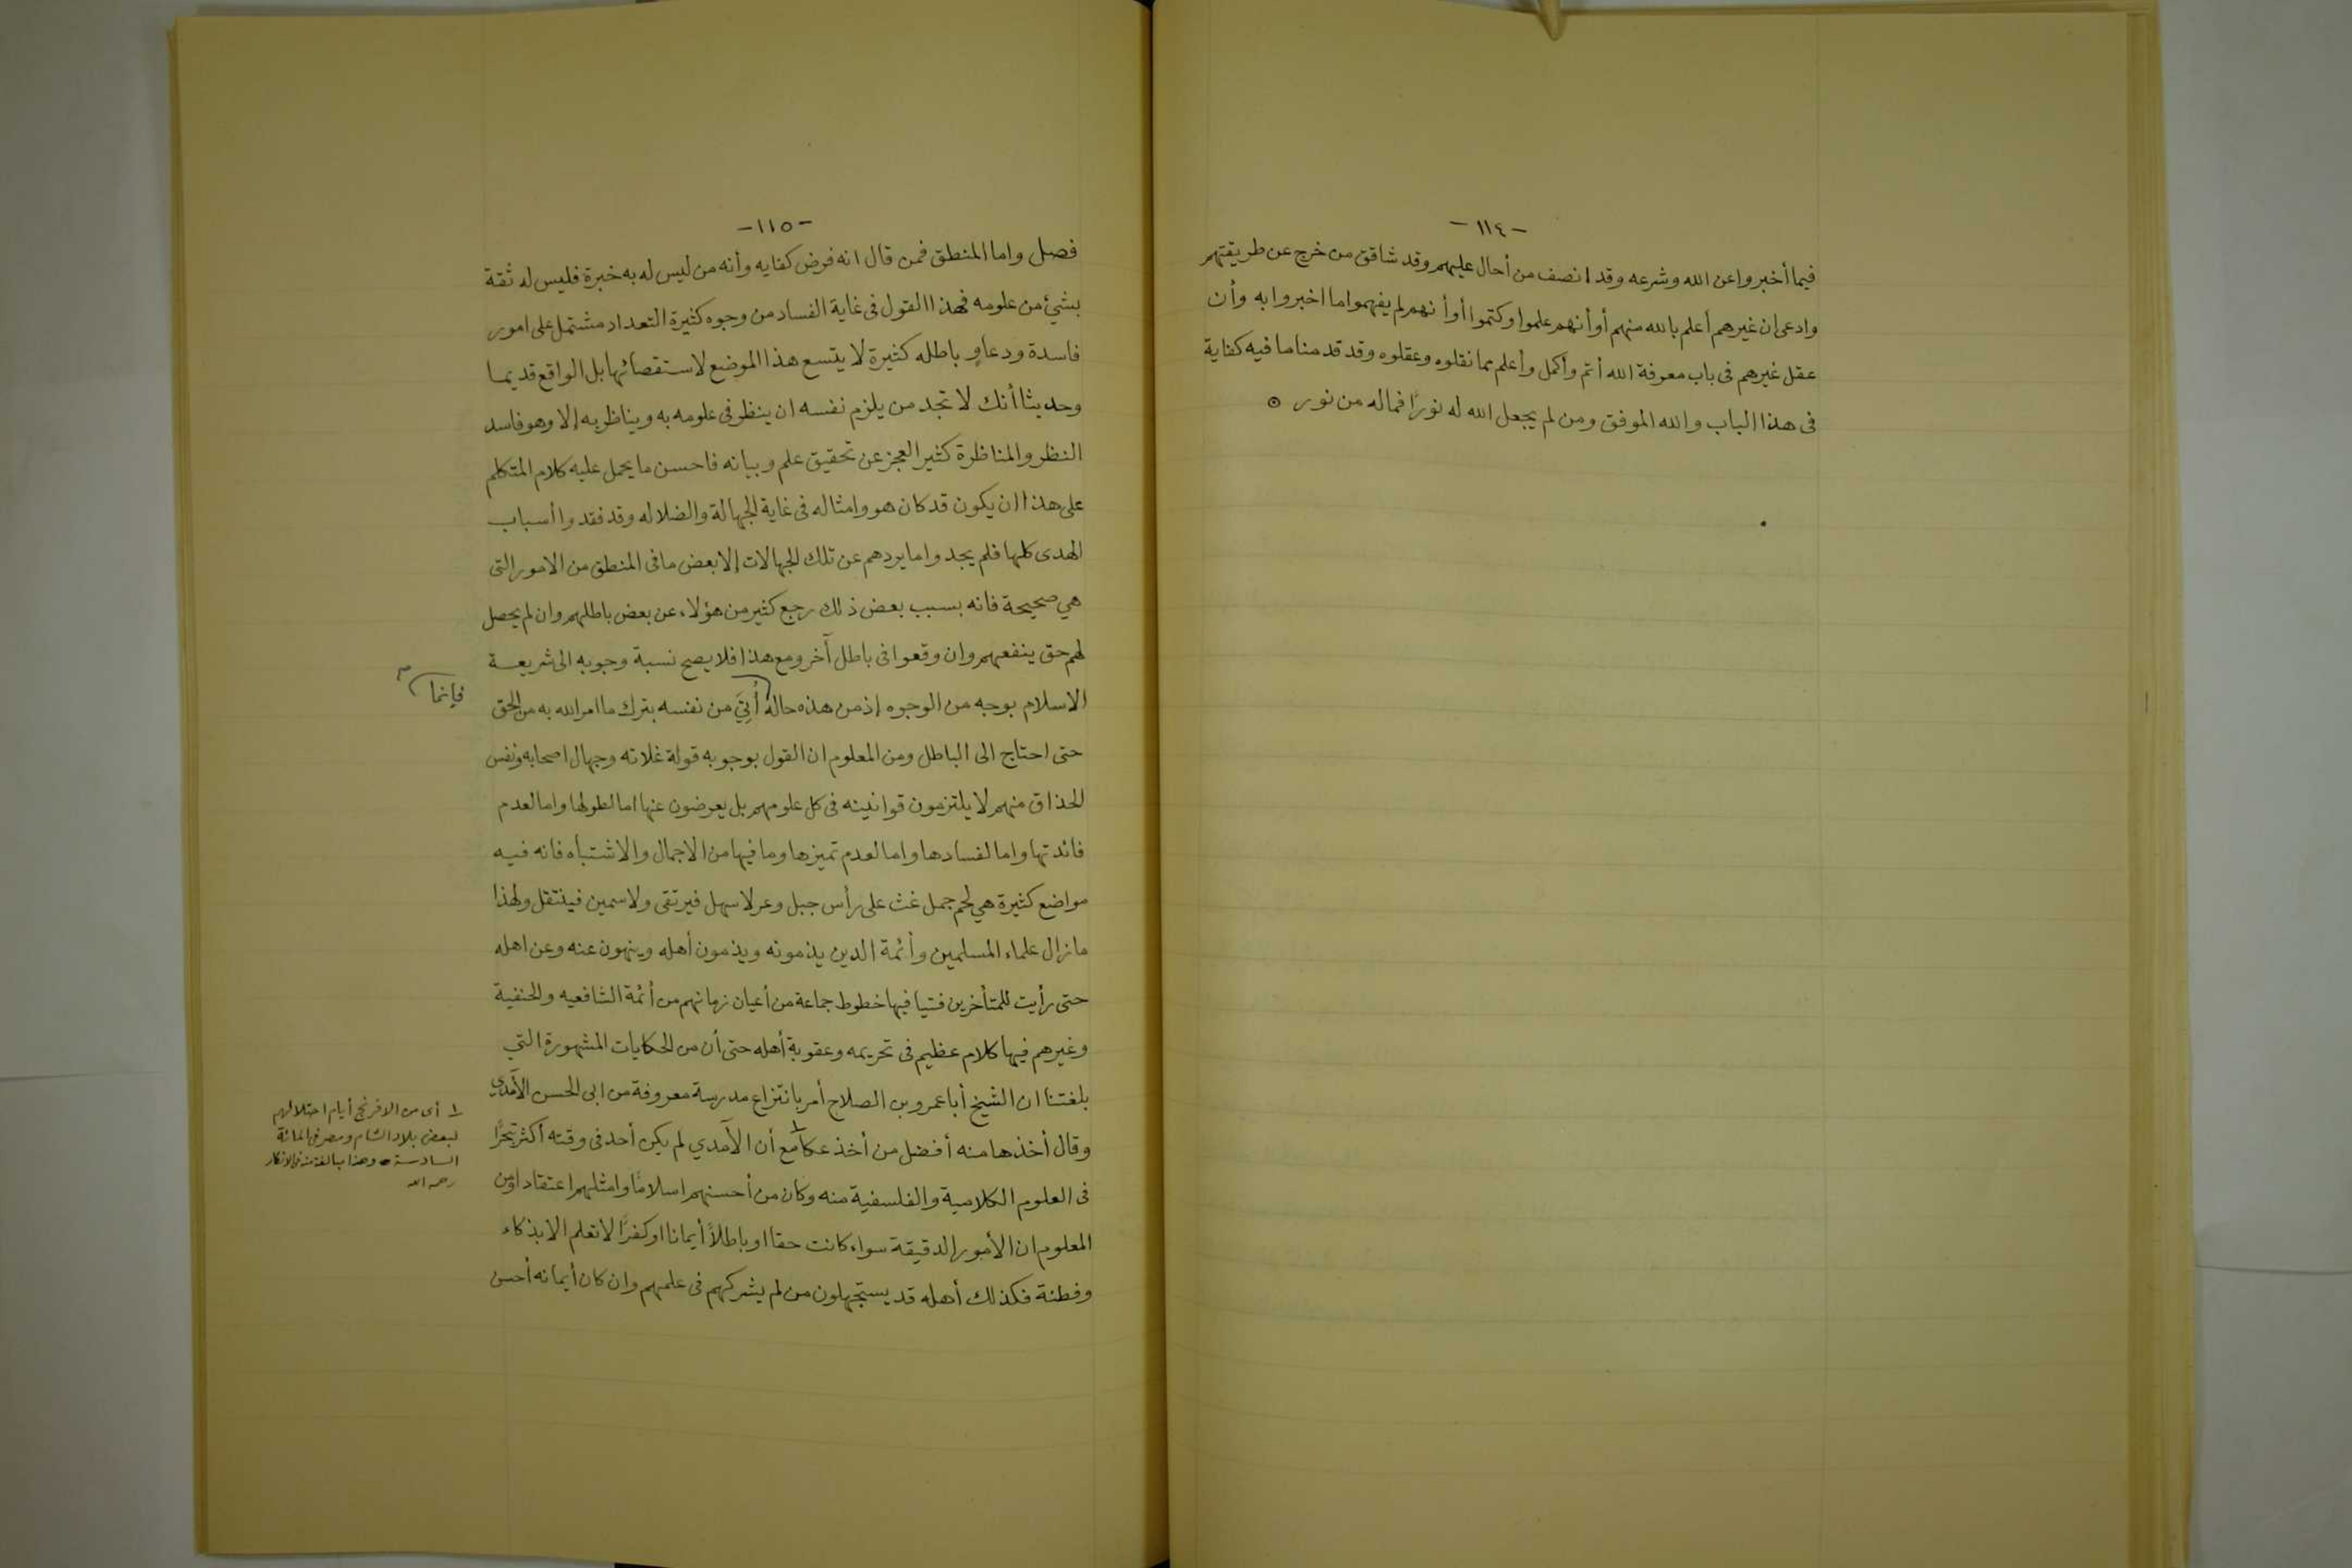 - ١١٤ -
فيما أخبروا عن الله وشرعه وقد انصف من أحال عليهم وقد شاقق من خرج عن طريقتهم
وادعى ان غيرهم أعلم بالله منهم أو أنهم علموا وكتموا أو أنهم لم يفهموا ما اخبروا به وأن
عقل غيرهم فى باب معرفة الله أتم وأكمل وأعلم مما نقلوه وعقلوه وقد قدمنا ما فيه كفاية
فى هذا الباب والله الموفق ومن لم يجعل الله له نورًا فما له من نور ⊙
- ١١٥ -
فصل واما المنطق فمن قال انه فرض كفايه وأنه من ليس له به خبرة فليس له ثقة
بشيئ من علومه فهذا القول فى غاية الفساد من وجوه كثيرة التعداد مشتمل على امور
فاسدة ودعاوٍ باطله كثيرة لا يتسع هذا الموضع لاستقصائها بل الواقع قديما
وحديثا أنك لا تجد من يلزم نفسه ان ينظر فى علومه به ويناظر به إلا وهو فاسد
النظر والمناظرة كثير العجز عن تحقيق علم وبيانه فاحسن ما يحمل عليه كلام المتكلم
على هذا ان يكون قد كان هو وامثاله فى غاية الجهالة والضلاله وقد فقدوا أسباب
الهدى كلها فلم يجدوا ما يردهم عن تلك الجهالات إلا بعض ما فى المنطق من الامور التى
هي صحيحة فانه بسبب بعض ذلك رجع كثير من هؤلاء عن بعض باطلهم وان لم يحصل
لهم حق ينفعهم وان وقعوا فى باطل آخر ومع هذا فلا يصح نسبة وجوبه الى شريعة
الاسلام بوجه من الوجوه إذ من هذه حاله أُتِيَ من نفسه بترك ما امر الله به من الحق
فإنما
حتى احتاج الى الباطل ومن المعلوم ان القول بوجوبه قولة غلاته وجهال اصحابه ونفس
الحذاق منهم لا يلتزمون قوانينه فى كل علومهم بل يعرضون عنها اما لطولها واما لعدم
فائدتها واما لفسادها واما لعدم تميزها وما فيها من الاجمال والاشتباه فانه فيه
مواضع كثيرة هي لحم جمل غث على رأس جبل وعر لا سهل فيرتقى ولا سمين فينتقل ولهذا
ما زال علماء المسلمين وأئمة الدين يذمونه ويذمون أهله وينهون عنه وعن اهله
حتى رأيت للمتأخرين فتيا فيها خطوط جماعة من أعيان زمانهم من أئمة الشافعيه والحنفية
وغيرهم فيها كلام عظيم فى تحريمه وعقوبة أهله حتى أن من الحكايات المشهورة التي
بلغتنا ان الشيخ أبا عمرو بن الصلاح أمر بانتزاع مدرسة معروفة من ابى الحسن الآمدى
وقال أخذها منه أفضل من أخذ عكا ١ مع أن الآمدي لم يكن أحد فى وقته أكثر تبحُّرًا
فى العلوم الكلامية والفلسفية منه وكان من أحسنهم اسلامًا وامثلهم اعتقادا ومن
المعلوم ان الأمور الدقيقة سواء كانت حقا او باطلاً أيمانا او كفرًا لا تعلم الا بذكاء
وفطنة فكذلك أهله قد يستجهلون من لم يشركهم فى علمهم وان كان أيمانه أحسن
١ أى من الافرنج أيام احتلالهم
لبعض بلاد الشام ومصر فى المائة
السادسة وهذا مبالغة منه فى الانكار
رحمه الله